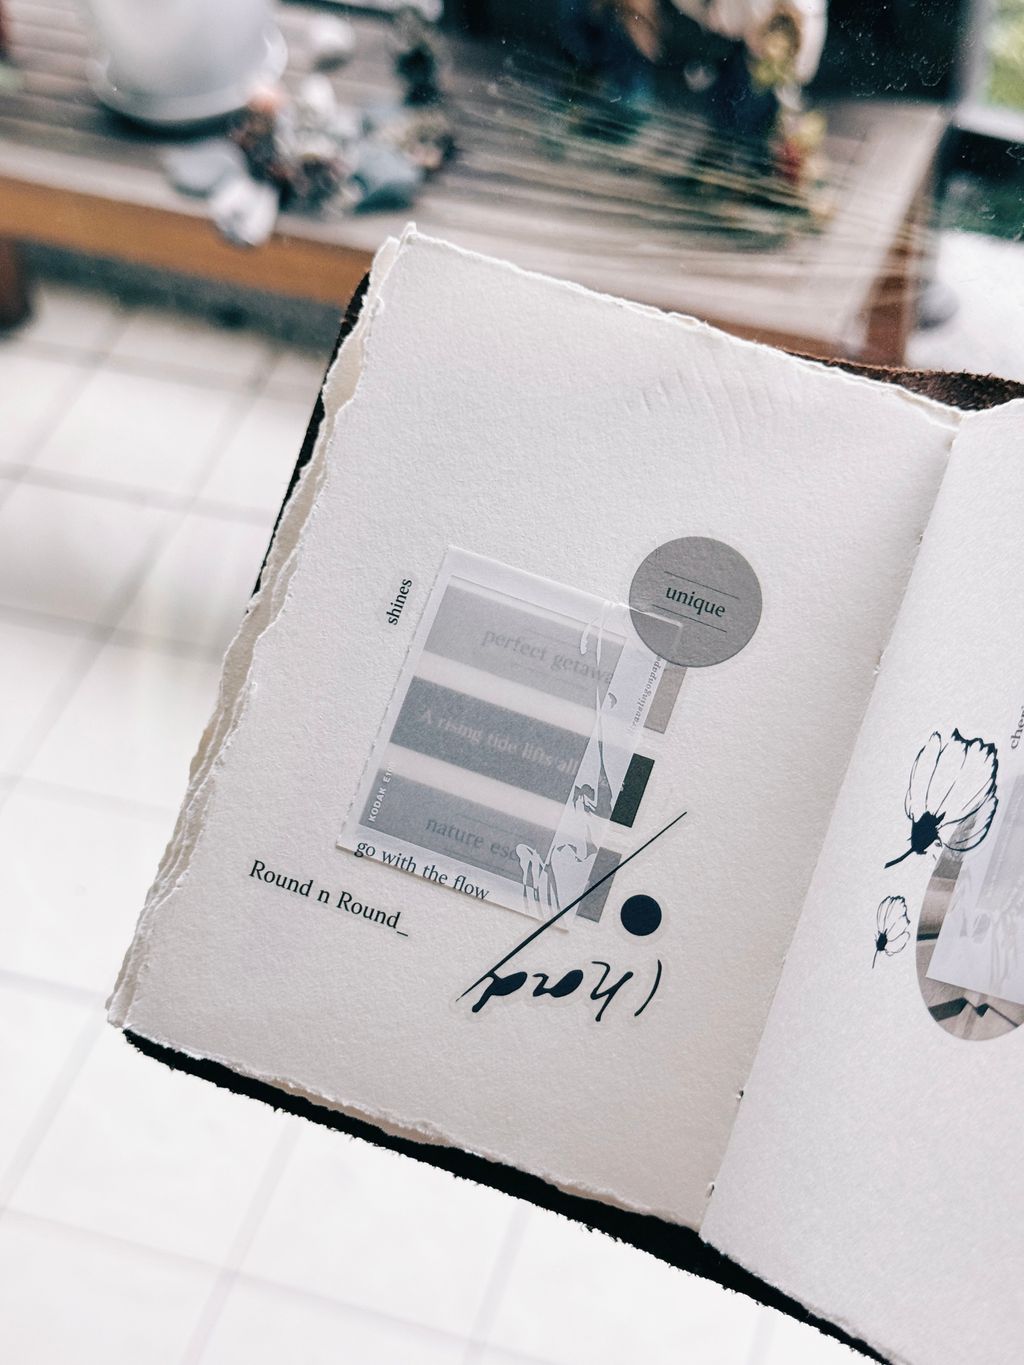 shines
unique
perfect getawa
ravelingonpape
A rising tide lifts all
KODAK E10
nature esc
go with the flow
Round n Round_
cher